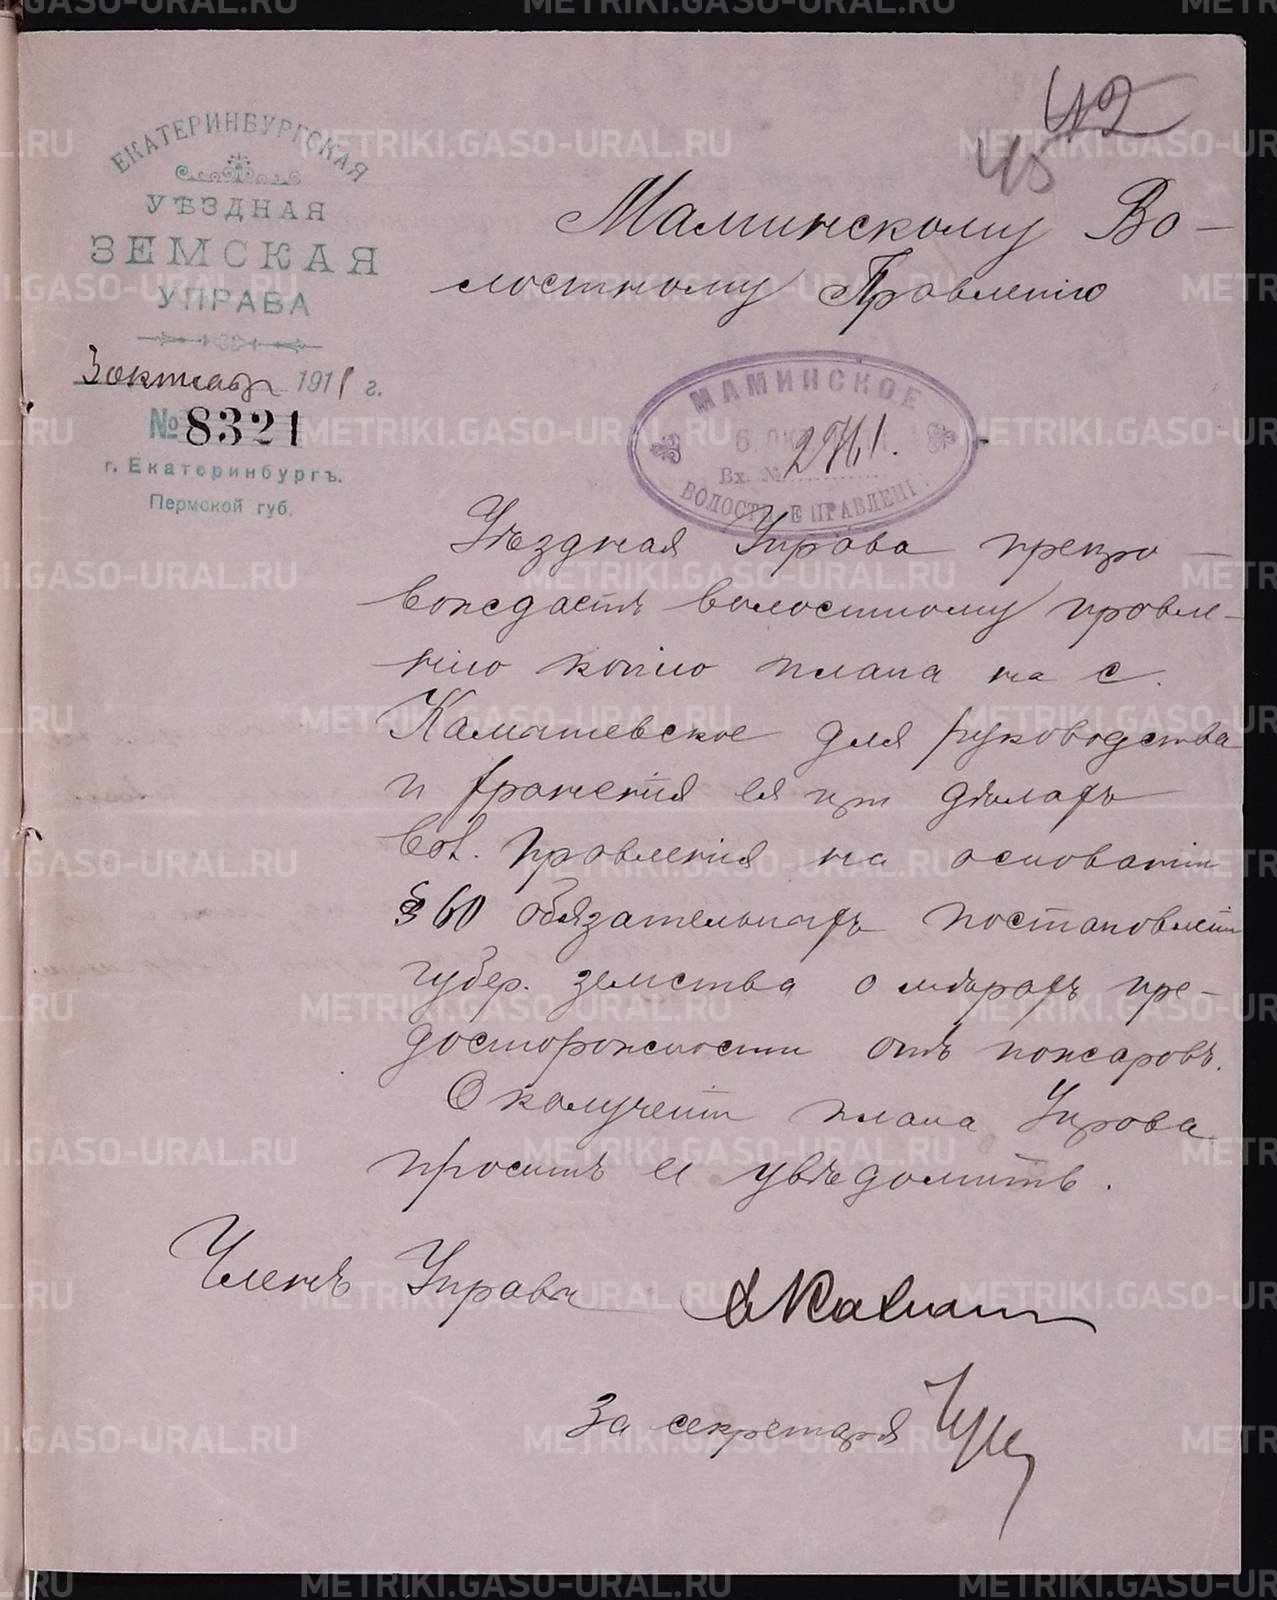 42
45
ЕКАТЕРИНБУРГСКАЯ
УѢЗДНАЯ
ЗЕМСКАЯ
УПРАВА
3 октябр 1911 г.
№ 8321
г. Екатеринбургъ.
Пермской губ.
Маминскому Во-
лостному Правленію
МАМИНСКОЕ
6. ОКТ
Вх. № 2461.
ВОЛОСТН Е ПРАВЛЕНІ
Уѣздная Управа препро-
вождаетъ волостному правле-
нію копію плана на с.
Камышевское для руководства
и храненія ея при дѣлахъ
вол. правленія на основаніи
§ 60 обязательныхъ постановленій
губер. земства о мѣрахъ пре-
досторожности отъ пожаровъ.
О полученіи плана Управа
проситъ ея увѣдомить.
Членъ Управы
За секретаря
METRIKI.GASO-URAL.RU